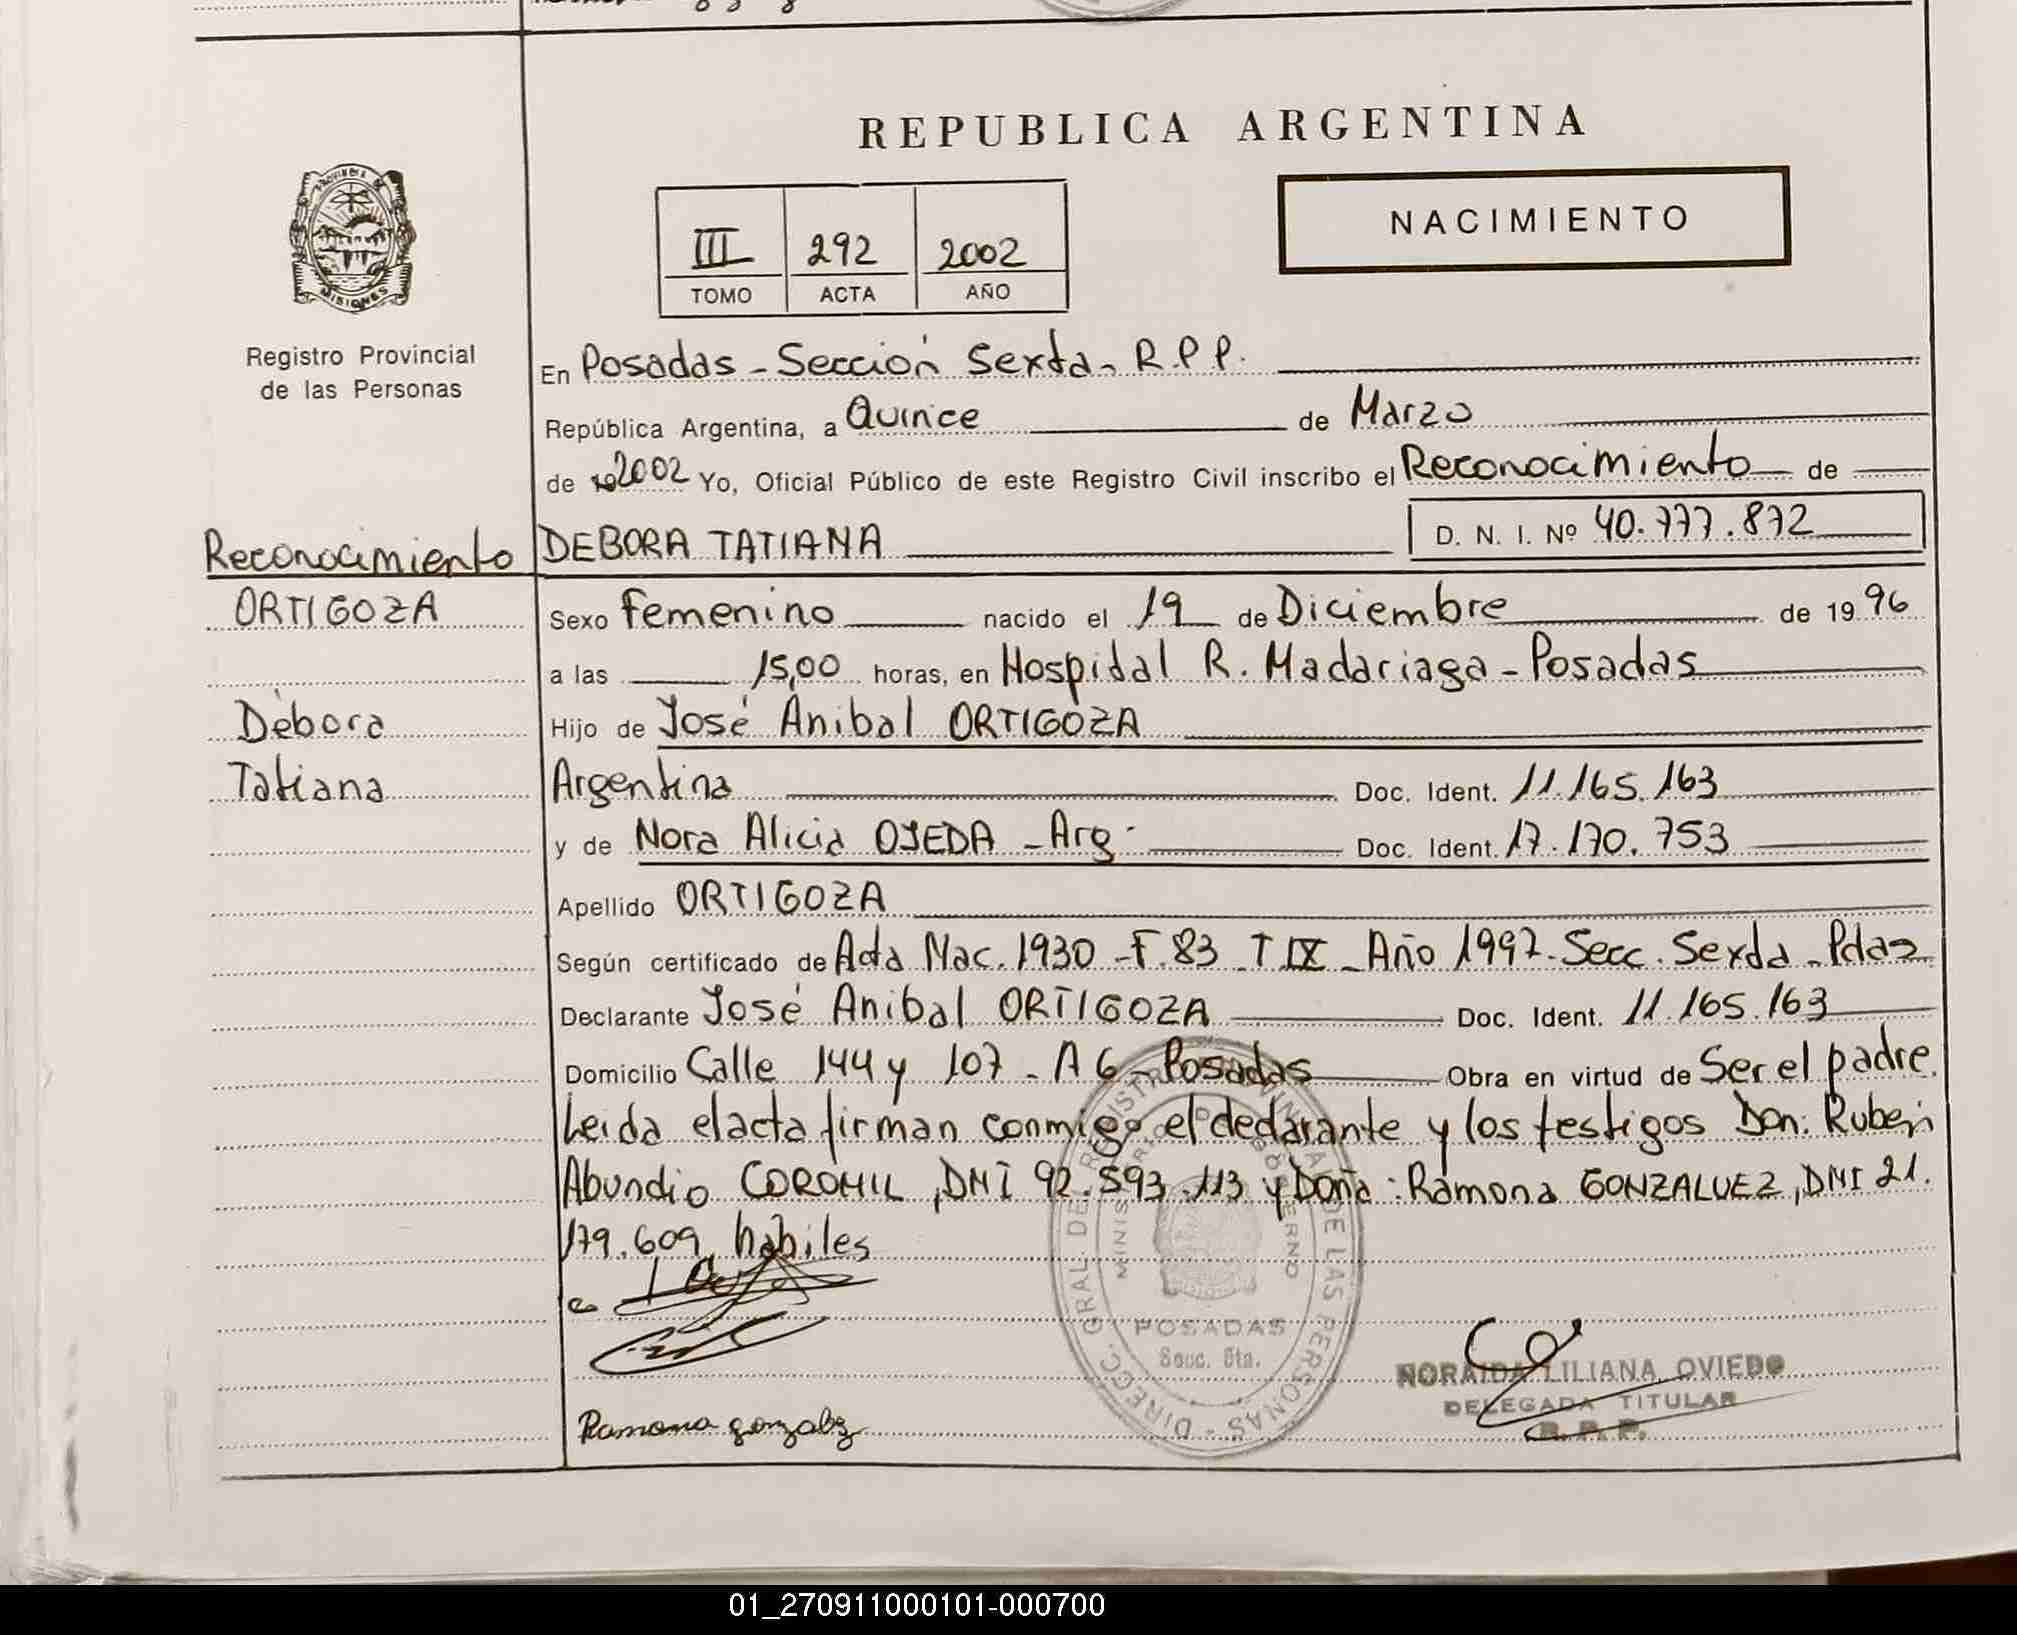 REPUBLICA ARGENTINA
NACIMIENTO
III 292 2002
TOMO ACTA AÑO
PROVINCIA DE MISIONES
Registro Provincial
de las Personas
En Posadas - Sección Sexta - R.P.P.
República Argentina, a Quince de Marzo
de 2002 Yo, Oficial Público de este Registro Civil inscribo el Reconocimiento de
Reconocimiento
DEBORA TATIANA D. N. I. Nº 40.777.872
ORTIGOZA
Sexo Femenino nacido el 19 de Diciembre de 1996
a las 15,00 horas, en Hospital R. Madariaga - Posadas
Débora
Hijo de José Anibal ORTIGOZA
Tatiana
Argentina Doc. Ident. 11.165.163
y de Nora Alicia OJEDA - Arg. Doc. Ident. 17.170.753
Apellido ORTIGOZA
Según certificado de Acta Nac. 1930 - F. 83 T IX - Año 1997 - Secc. Sexta - Pdas
Declarante José Anibal ORTIGOZA Doc. Ident. 11.165.163
Domicilio Calle 144 y 107 - A 6 - Posadas Obra en virtud de Ser el padre.
Leida el acta firman conmigo el declarante y los testigos Don: Ruben
Abundio COROMIL, DNI 92.593.113 y Doña: Ramona GONZALVEZ, DNI 21.
179.609, habiles
DIRECC. GRAL. DE REGISTRO PROVINCIAL DE LAS PERSONAS
MINISTERIO DE GOBIERNO
POSADAS
Secc. 6ta.
NORAIDA LILIANA OVIEDO
DELEGADA TITULAR
R. P. P.
Ramona
01_270911000101-000700